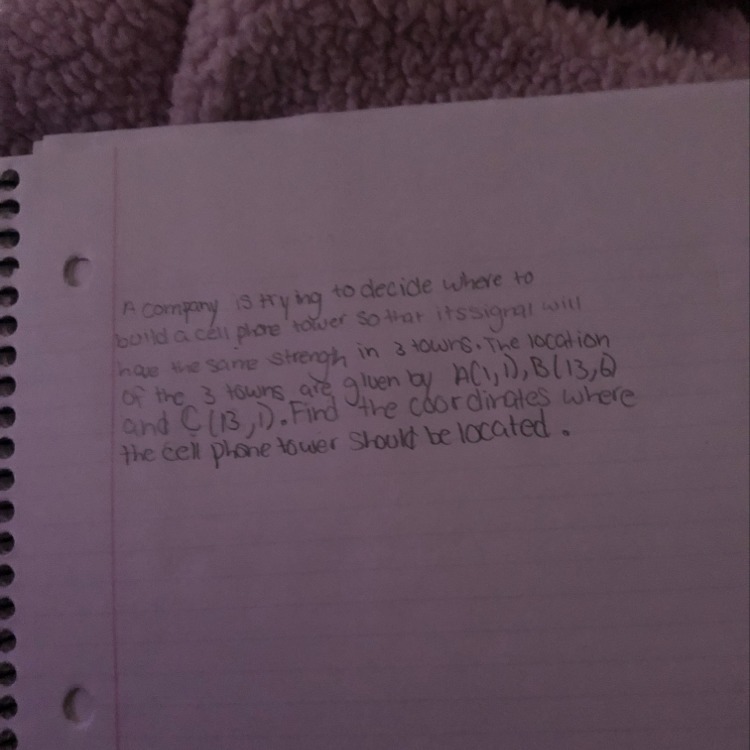 A company is trying to decide where to
build a cell phone tower so that its signal will
have the same strengh in 3 towns. The location
of the 3 towns are given by A(1,1), B(13,6)
and C(13,1). Find the coordinates where
the cell phone tower should be located.